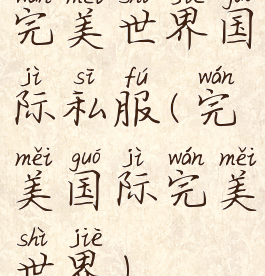 wán měi shì jiè guó
完美世界国
jì sī fú wán
际私服(完
měi guó jì wán měi
美国际完美
shì jiē
世界)